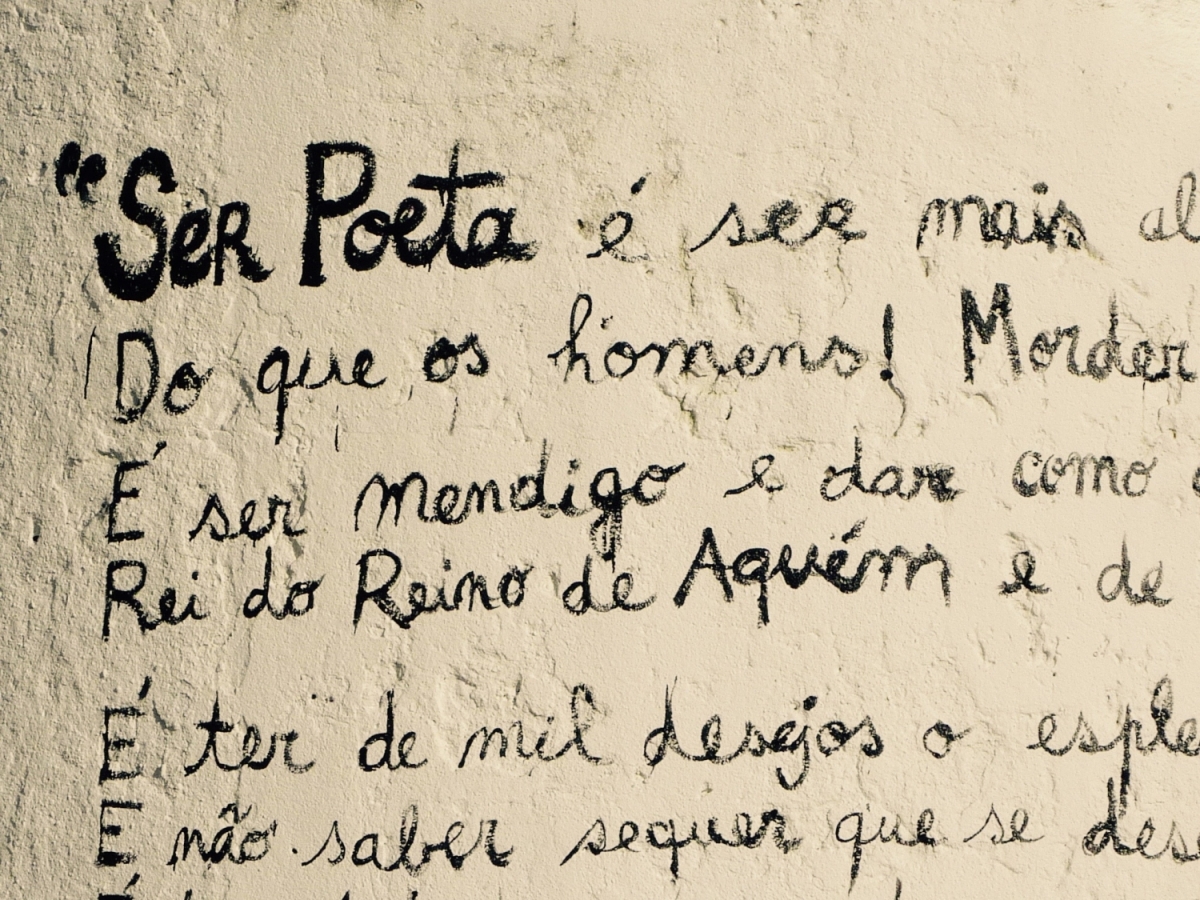 "Ser Poeta é ser mais al
Do que os homens! Morder
É ser mendigo e dar como
Rei do Reino de Aquém e de
É ter de mil desejos o esple
E não saber sequer que se dese